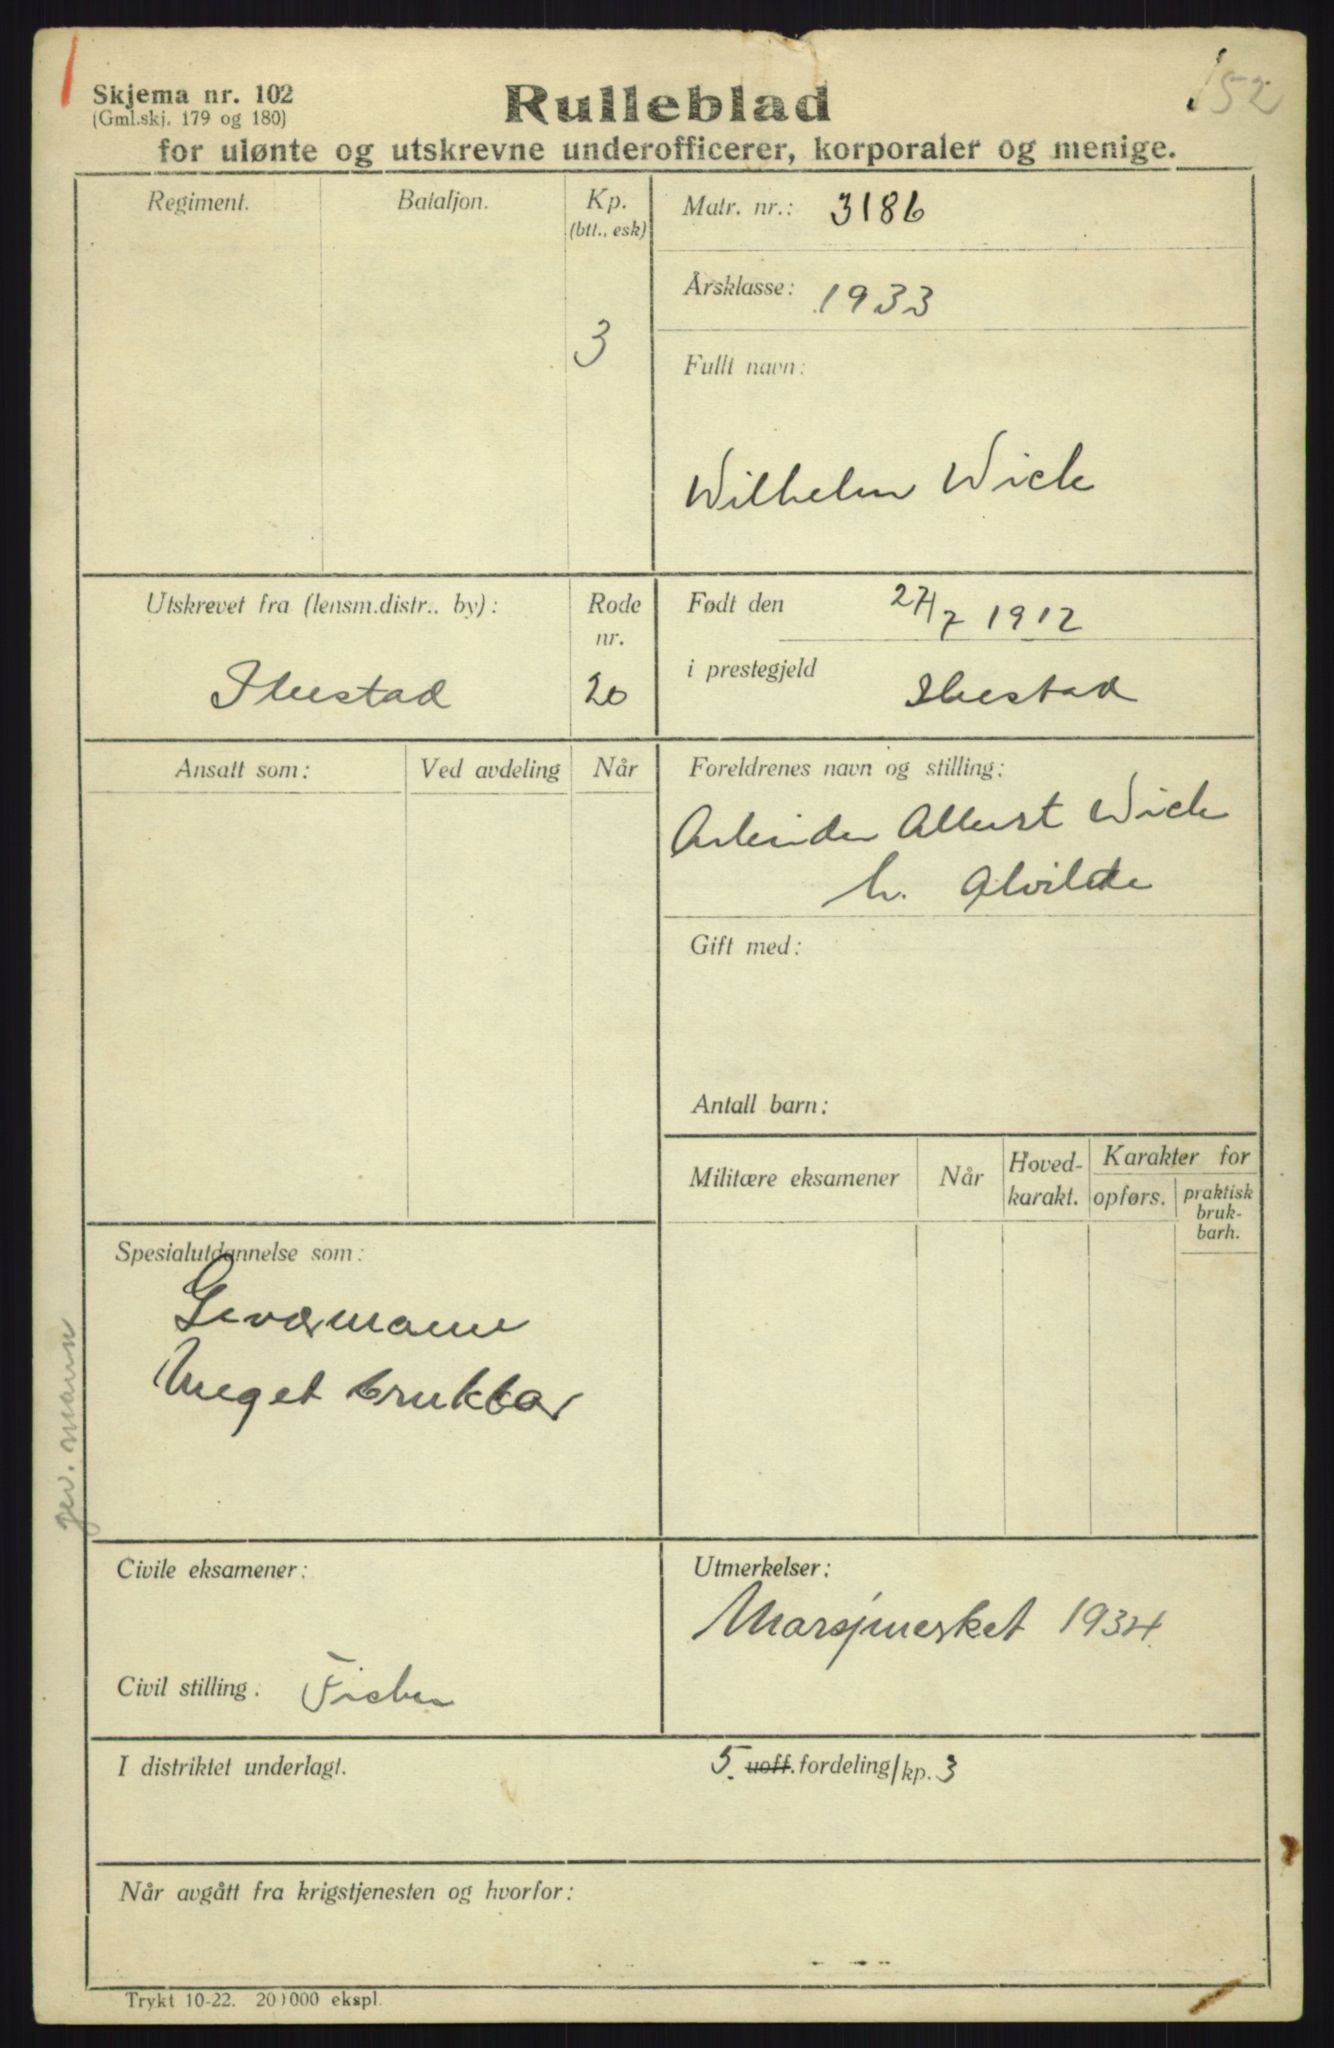 152
Skjema nr. 102
(Gml.skj. 179 og 180)
Rulleblad
for ulønte og utskrevne underofficerer, korporaler og menige.
Regiment.
Bataljon.
Kp.
(btt., esk)
3
Matr. nr.: 3186
Årsklasse: 1933
Fullt navn:
Wilhelm Wick
Utskrevet fra (lensm.distr.. by):
Ibestad
Rode
nr.
20
Født den 27/7 1912
i prestegjeld Ibestad
Ansatt som:
Ved avdeling
Når
Foreldrenes navn og stilling:
Arbeider Albert Wick
h. Alvilde
Gift med:
Antall barn:
Militære eksamener
Når
Hoved-
karakt.
Karakter for
opførs.
praktisk
bruk-
barh.
Spesialutdannelse som:
Geværmann
Meget brukbar
gev. mann
Civile eksamener:
Civil stilling. Fisker
Utmerkelser:
Marsjmerket 1934.
I distriktet underlagt.
5. uoff. fordeling/kp. 3
Når avgått fra krigstjenesten og hvorfor:
Trykt 10-22. 20 000 ekspl.